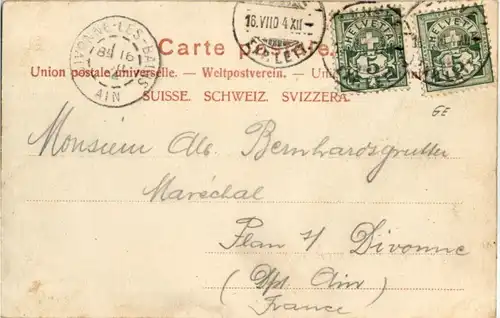 DIVONNE-LES-BAINS
AIN
16.VII 04 XII
Carte
HELVETIA
HELVETIA
5
Union postale universelle. — Weltpostverein. —
SUISSE. SCHWEIZ. SVIZZERA.
GE
Monsieur Alb. Bernhardsgrutter
Maréchal
Plan s/ Divonne
(Dpt Ain)
France